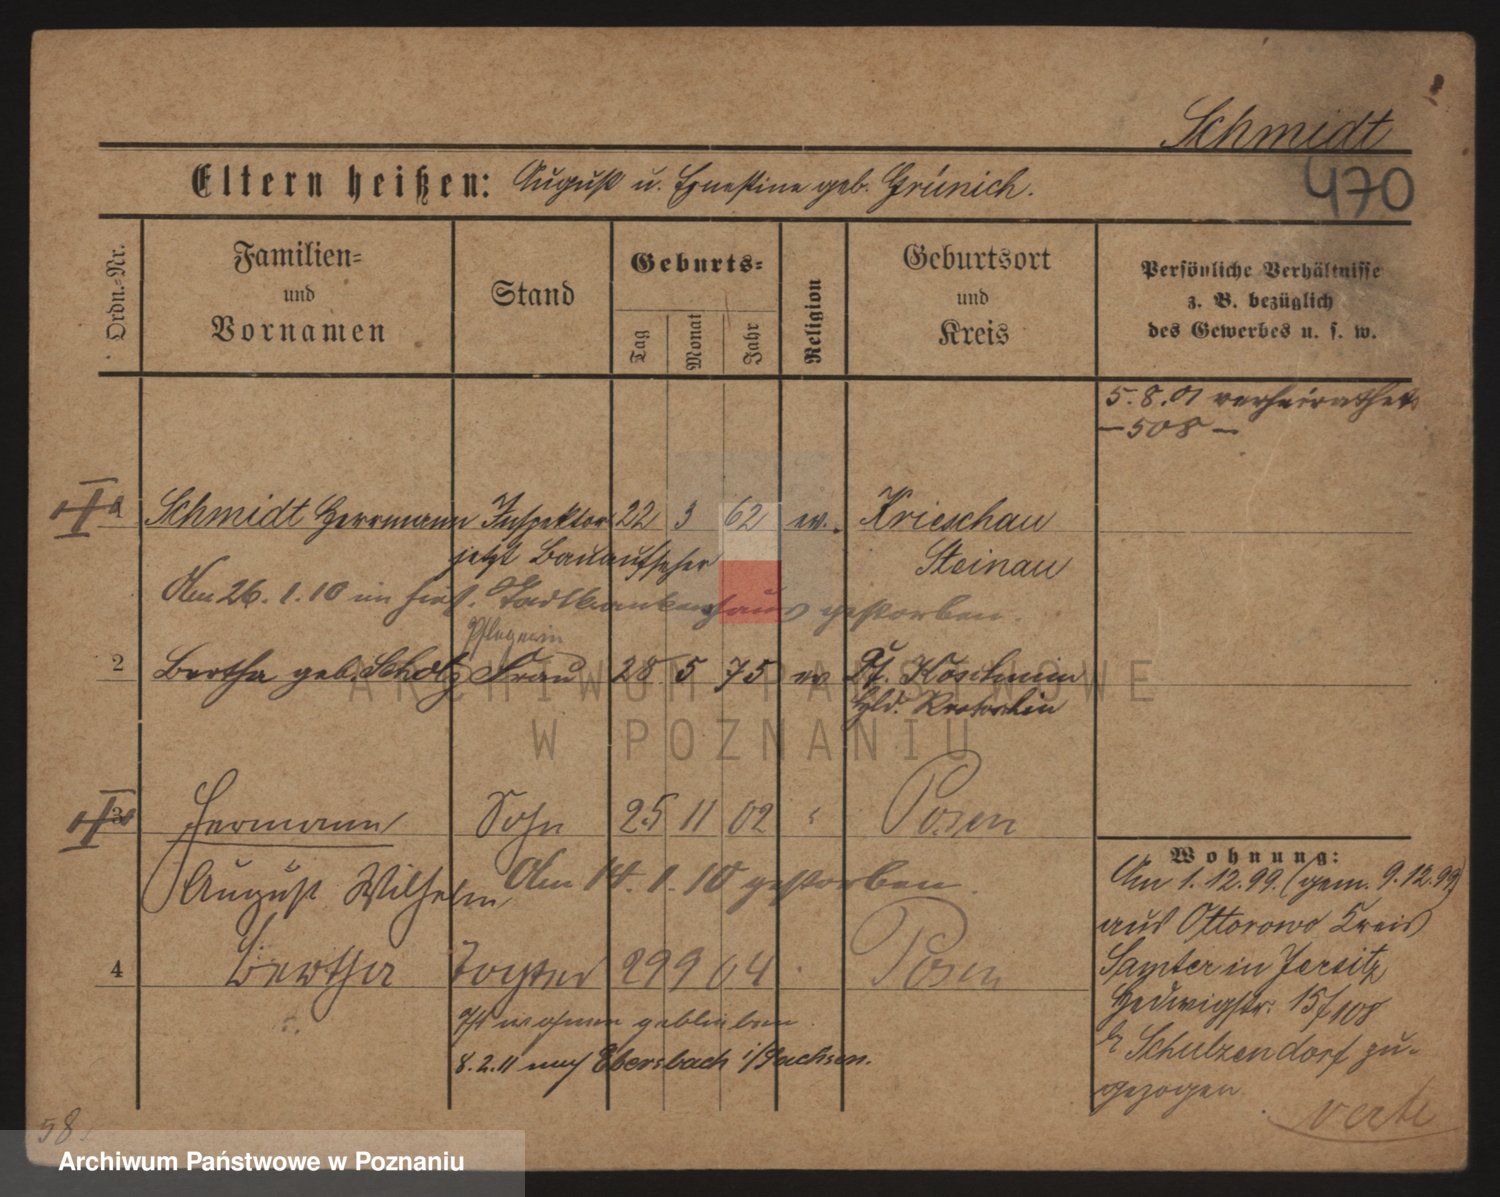 Schmidt
470
Eltern heißen: August u. Ernestine geb. Grünich.
Ordn.-Nr.
Familien- und Vornamen
Stand
Geburts-
Tag
Monat
Jahr
Religion
Geburtsort und Kreis
Persönliche Verhältnisse
z. B. bezüglich
des Gewerbes u. s. w.
5.8.01 verheirathet
– 508 –
1 Schmidt Herrmann Inspektor 22 3 62 ev. Krieschau
jetzt Bauaufseher Steinau
Am 26.1.10 im hies. Stadtkrankenhaus gestorben.
Pflegerin
2 Bertha geb. Scholz Frau 28 5 75 ev Gt. Koschmin
Krotoschin
3 Hermann Sohn 25 11 02 " Posen
August Wilhelm Am 14.1.10 gestorben.
4 Bertha Tochter 29 9 04 Posen
Ist wohnen geblieben
8.2.11 nach Ebersbach i/Sachsen.
Wohnung:
Am 1.12.99. (gem. 9.12.99)
aus Ottorowo Kreis
Samter in Jersitz
Hedwigstr. 15/108
Schulzendorf zu-
gezogen
verte
58.
ARCHIWUM PAŃSTWOWE
W POZNANIU
Archiwum Państwowe w Poznaniu